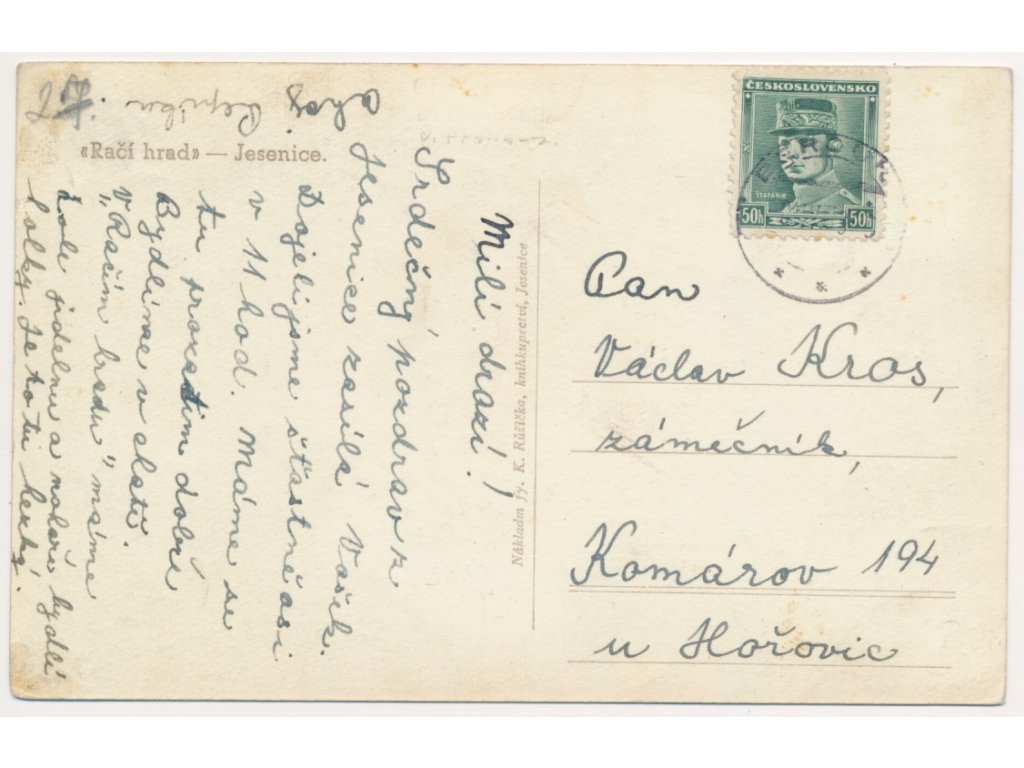 «Račí hrad» — Jesenice.
Milí drazí!
Srdečný pozdrav z
Jesenice zasílá Vašek.
Dojeli jsme šťastně asi
v 11 hod. Máme se
tu prozatim dobře
Bydlíme v chatě.
V „Račím hradu" máme
dole jídelnu a nahoře bydlí
holky. Je to tu hezký.
Nákladm fy. K. Růžička, knihkupectví, Jesenice
ČESKOSLOVENSKO
ŠTEFÁNIK
50h 50h
Pan
Václav Kros,
zámečník,
Komárov 194
u Hořovic